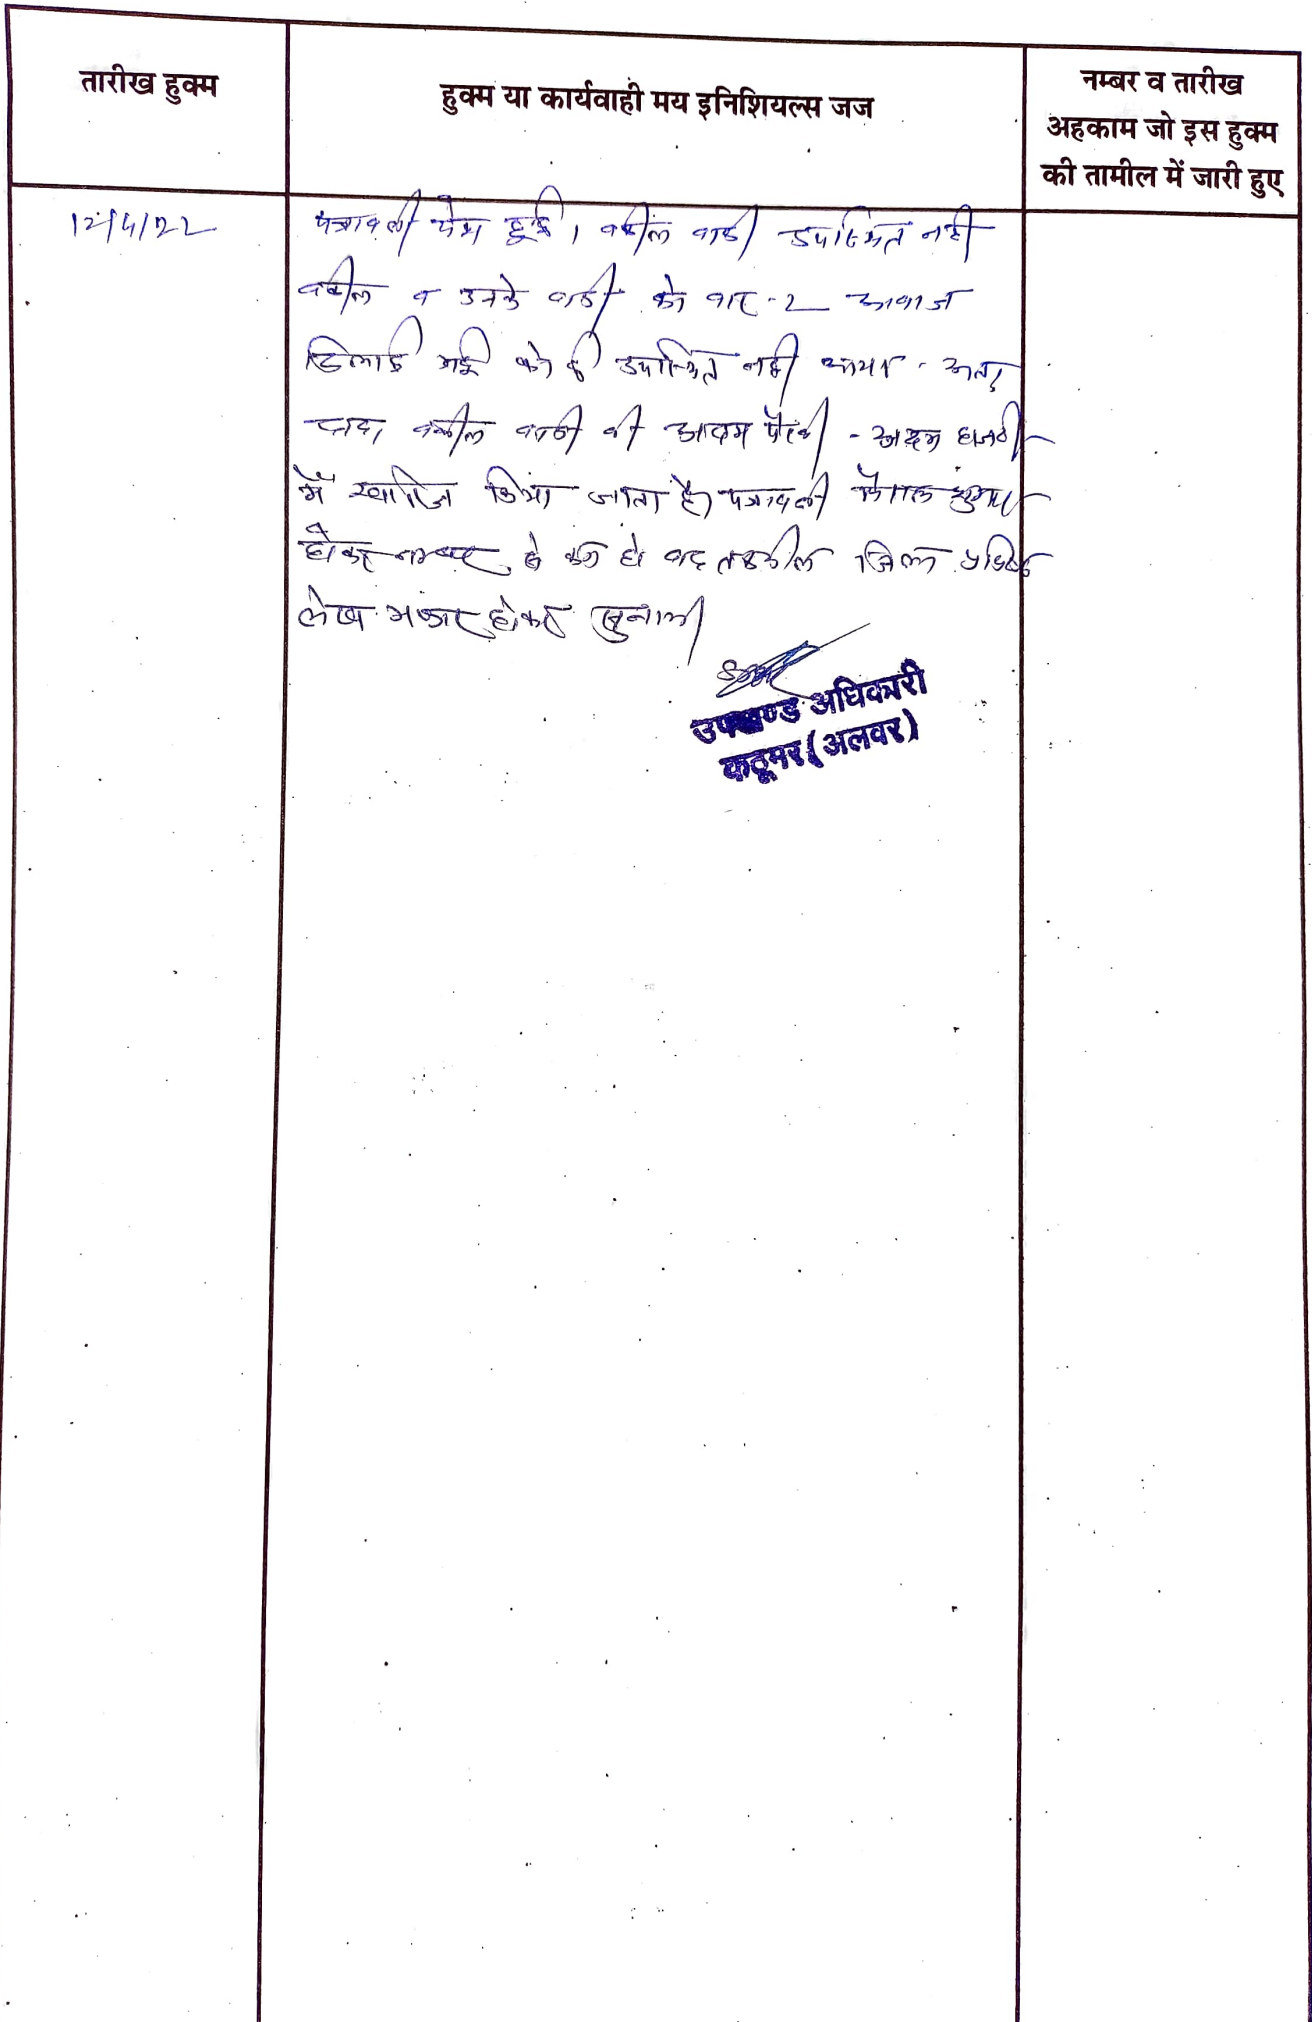 तारीख हुक्म
हुक्म या कार्यवाही मय इनिशियल्स जज
नम्बर व तारीख
अहकाम जो इस हुक्म
की तामील में जारी हुए
12/4/22
पत्रावली पेश हुई। वकील वादी उपस्थित नही
वकील व उनके वादी को बार-2 आवाज
दिलाई गई कोई उपस्थित नही आया - अतः
वकील वादी की अदम पैरवी - अदम हाजरी
में खारिज किया जाता है। पत्रावली फैसल शुमार
होकर नम्बर से कम हो बाद तकमील जिला अभि
लेख होकर
उपखण्ड अधिकारी
कठूमर (अलवर)